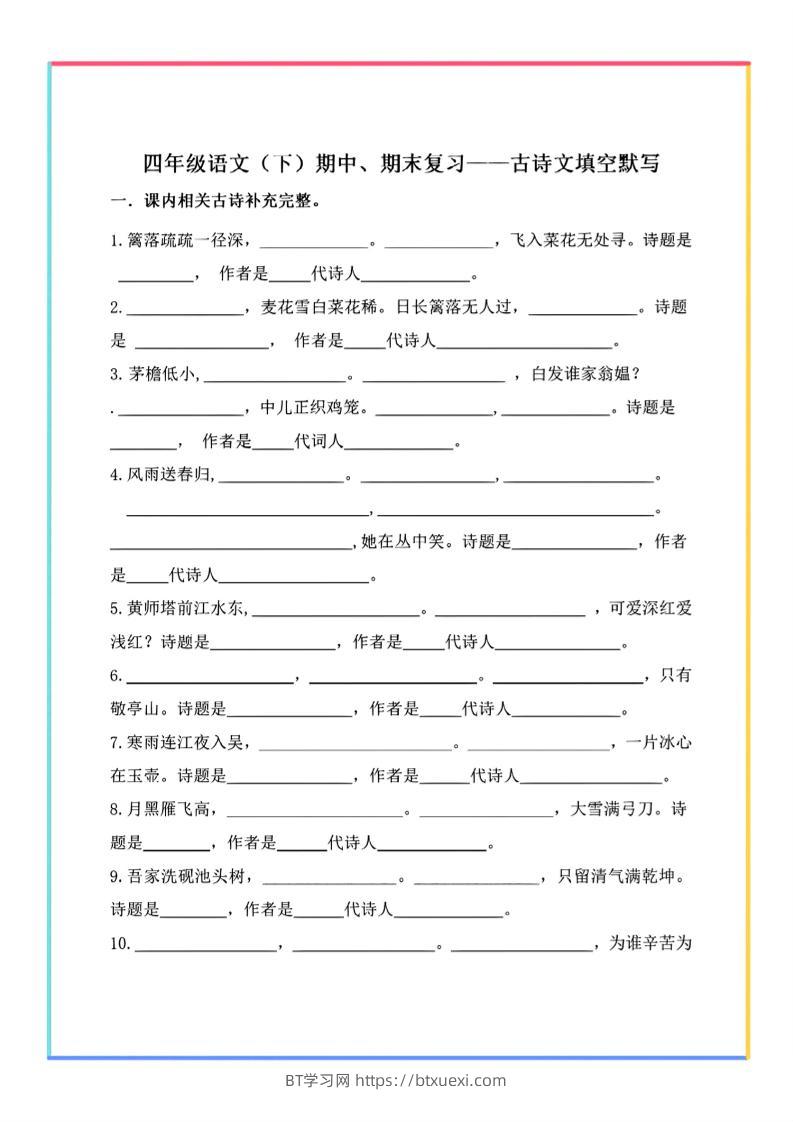 四年级语文（下）期中、期末复习——古诗文填空默写
一．课内相关古诗补充完整。
1.篱落疏疏一径深，_____________。_____________，飞入菜花无处寻。诗题是
_________， 作者是_____代诗人_____________。
2.______________，麦花雪白菜花稀。日长篱落无人过，_____________。诗题
是 ________________， 作者是_____代诗人_____________________。
3. 茅檐低小,_________________。_________________ ，白发谁家翁媪？
._______________，中儿正织鸡笼。______________,_____________。诗题是
________， 作者是_____代词人_____________。
4.风雨送春归,_______________。________________,__________________。
_____________________________,_________________________________。
_____________________________,她在丛中笑。诗题是_______________，作者
是_____代诗人__________________。
5.黄师塔前江水东,____________________。__________________ ，可爱深红爱
浅红？诗题是_______________，作者是_____代诗人_______________。
6.____________________，____________________。__________________，只有
敬亭山。诗题是_______________，作者是_____代诗人_____________。
7.寒雨连江夜入吴，_______________________。_________________，一片冰心
在玉壶。诗题是_______________，作者是______代诗人_________________。
8.月黑雁飞高，_____________________。________________，大雪满弓刀。诗
题是________，作者是______代诗人_____________。
9.吾家洗砚池头树，________________。_______________，只留清气满乾坤。
诗题是________，作者是______代诗人_____________。
10._________________，_________________。_________________，为谁辛苦为
BT学习网 https://btxuexi.com